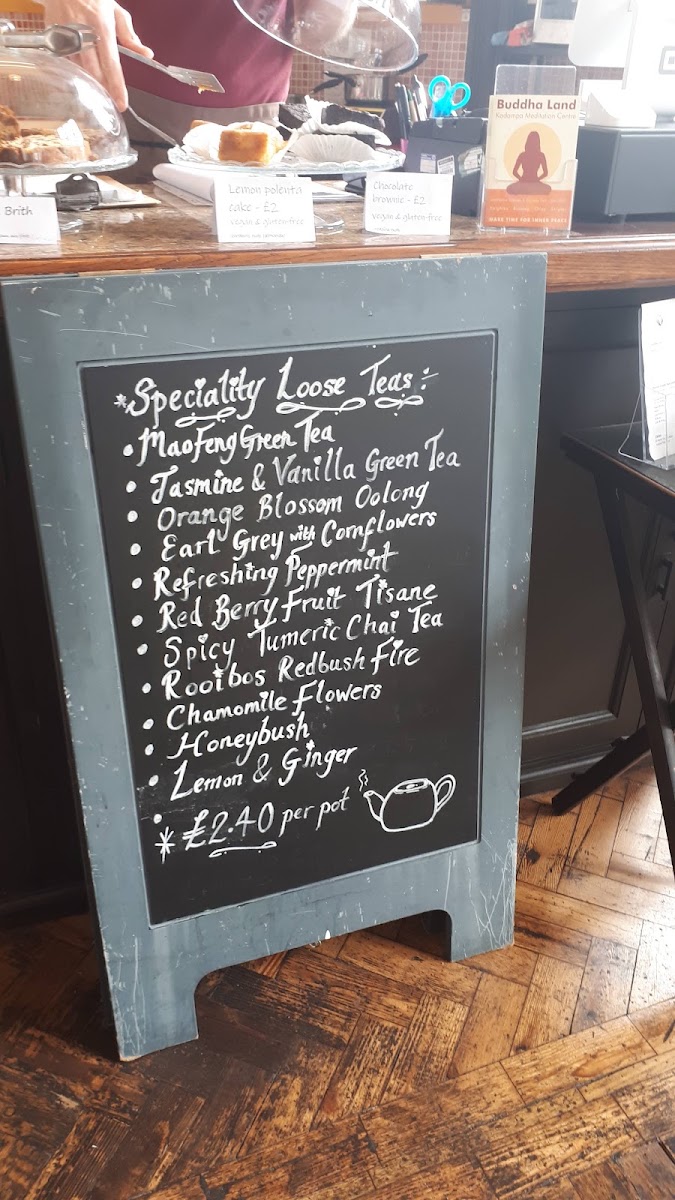 Brith
Lemon polenta
cake - £2
vegan & gluten-free
Chocolate
brownie - £2
vegan & gluten-free
Buddha Land
Kadampa Meditation Centre
MAKE TIME FOR INNER PEACE
*Speciality Loose Teas:-
• Mao Feng Green Tea
• Jasmine & Vanilla Green Tea
• Orange Blossom Oolong
• Earl Grey with Cornflowers
• Refreshing Peppermint
• Red Berry Fruit Tisane
• Spicy Tumeric Chai Tea
• Rooibos Redbush Fire
• Chamomile Flowers
• Honeybush
• Lemon & Ginger
•
* £2.40 per pot